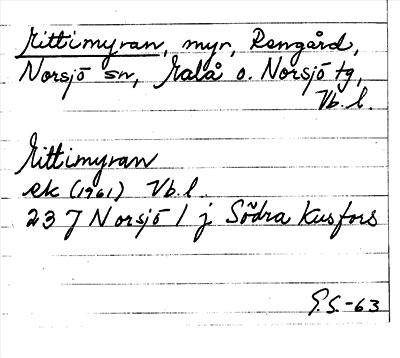 Mittimyran, myr, Rengård,
Norsjö sn, Malå o. Norsjö tg,
Vb. l.
Mittimyran
ek (1961) Vb. l.
23 J Norsjö 1 j Södra Kusfors
G.S.-63